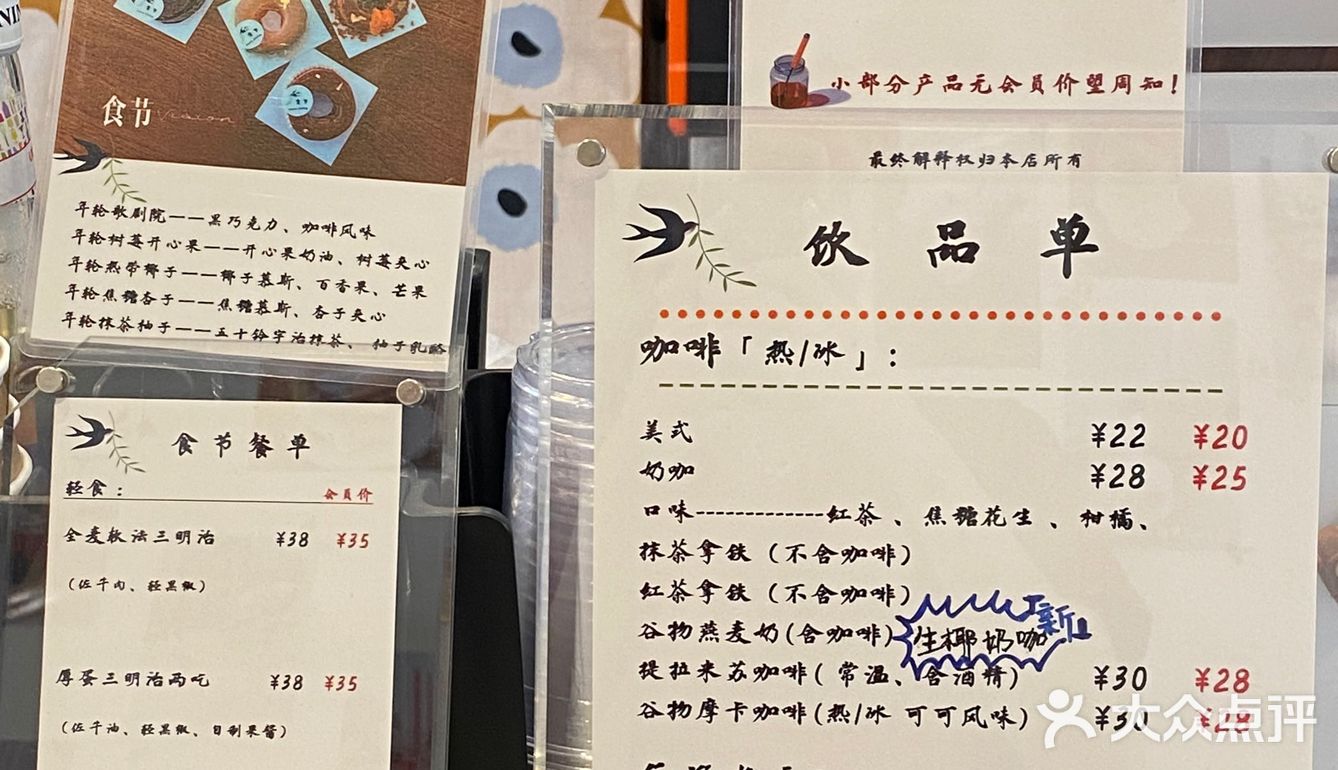 食节
年轮歌剧院——黑巧克力、咖啡风味
年轮树莓开心果——开心果奶油、树莓夹心
年轮热带椰子——椰子慕斯、百香果、芒果
年轮焦糖杏子——焦糖慕斯、杏子夹心
年轮抹茶柚子——五十铃宇治抹茶、柚子乳酪
食节餐单
轻食：
会员价
全麦软法三明治 ¥38 ¥35
（佐牛肉、轻黑椒）
厚蛋三明治两吃 ¥38 ¥35
（佐牛油、轻黑椒、自制果酱）
小部分产品无会员价望周知！
最终解释权归本店所有
饮品单
咖啡「热/冰」：
美式 ¥22 ¥20
奶咖 ¥28 ¥25
口味-------------红茶、焦糖花生、柑橘、
抹茶拿铁（不含咖啡）
红茶拿铁（不含咖啡）
谷物燕麦奶(含咖啡)
生椰奶咖
新
提拉米苏咖啡( 常温、含酒精) ¥30 ¥28
谷物摩卡咖啡(热/冰 可可风味) ¥30 ¥28
大众点评